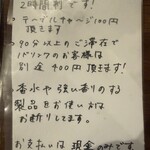 2時間制です!
・テーブルチャージ100円
頂きます
・90分以上のご滞在で
のお客様は
別途400円頂きます!
香水や強い香りの
製品をお使いの方は
お断りしてます。
お支払いは現金のみです